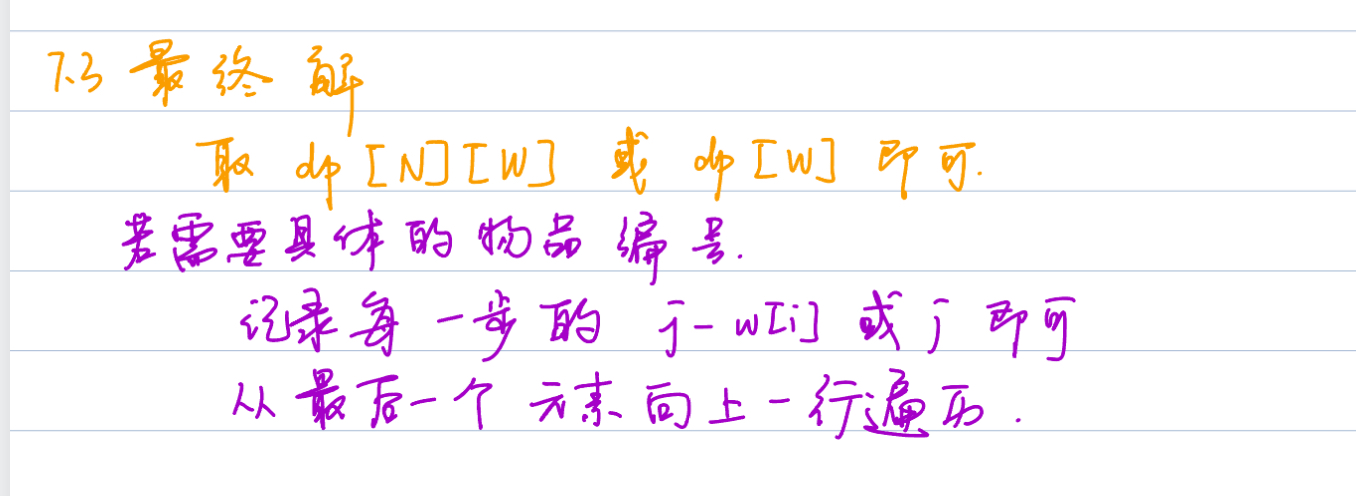 7.3 最终解
取 dp[N][W] 或 dp[W] 即可.
若需要具体的物品编号.
记录每一步的 j-w[i] 或 j 即可
从最后一个元素向上一行遍历.